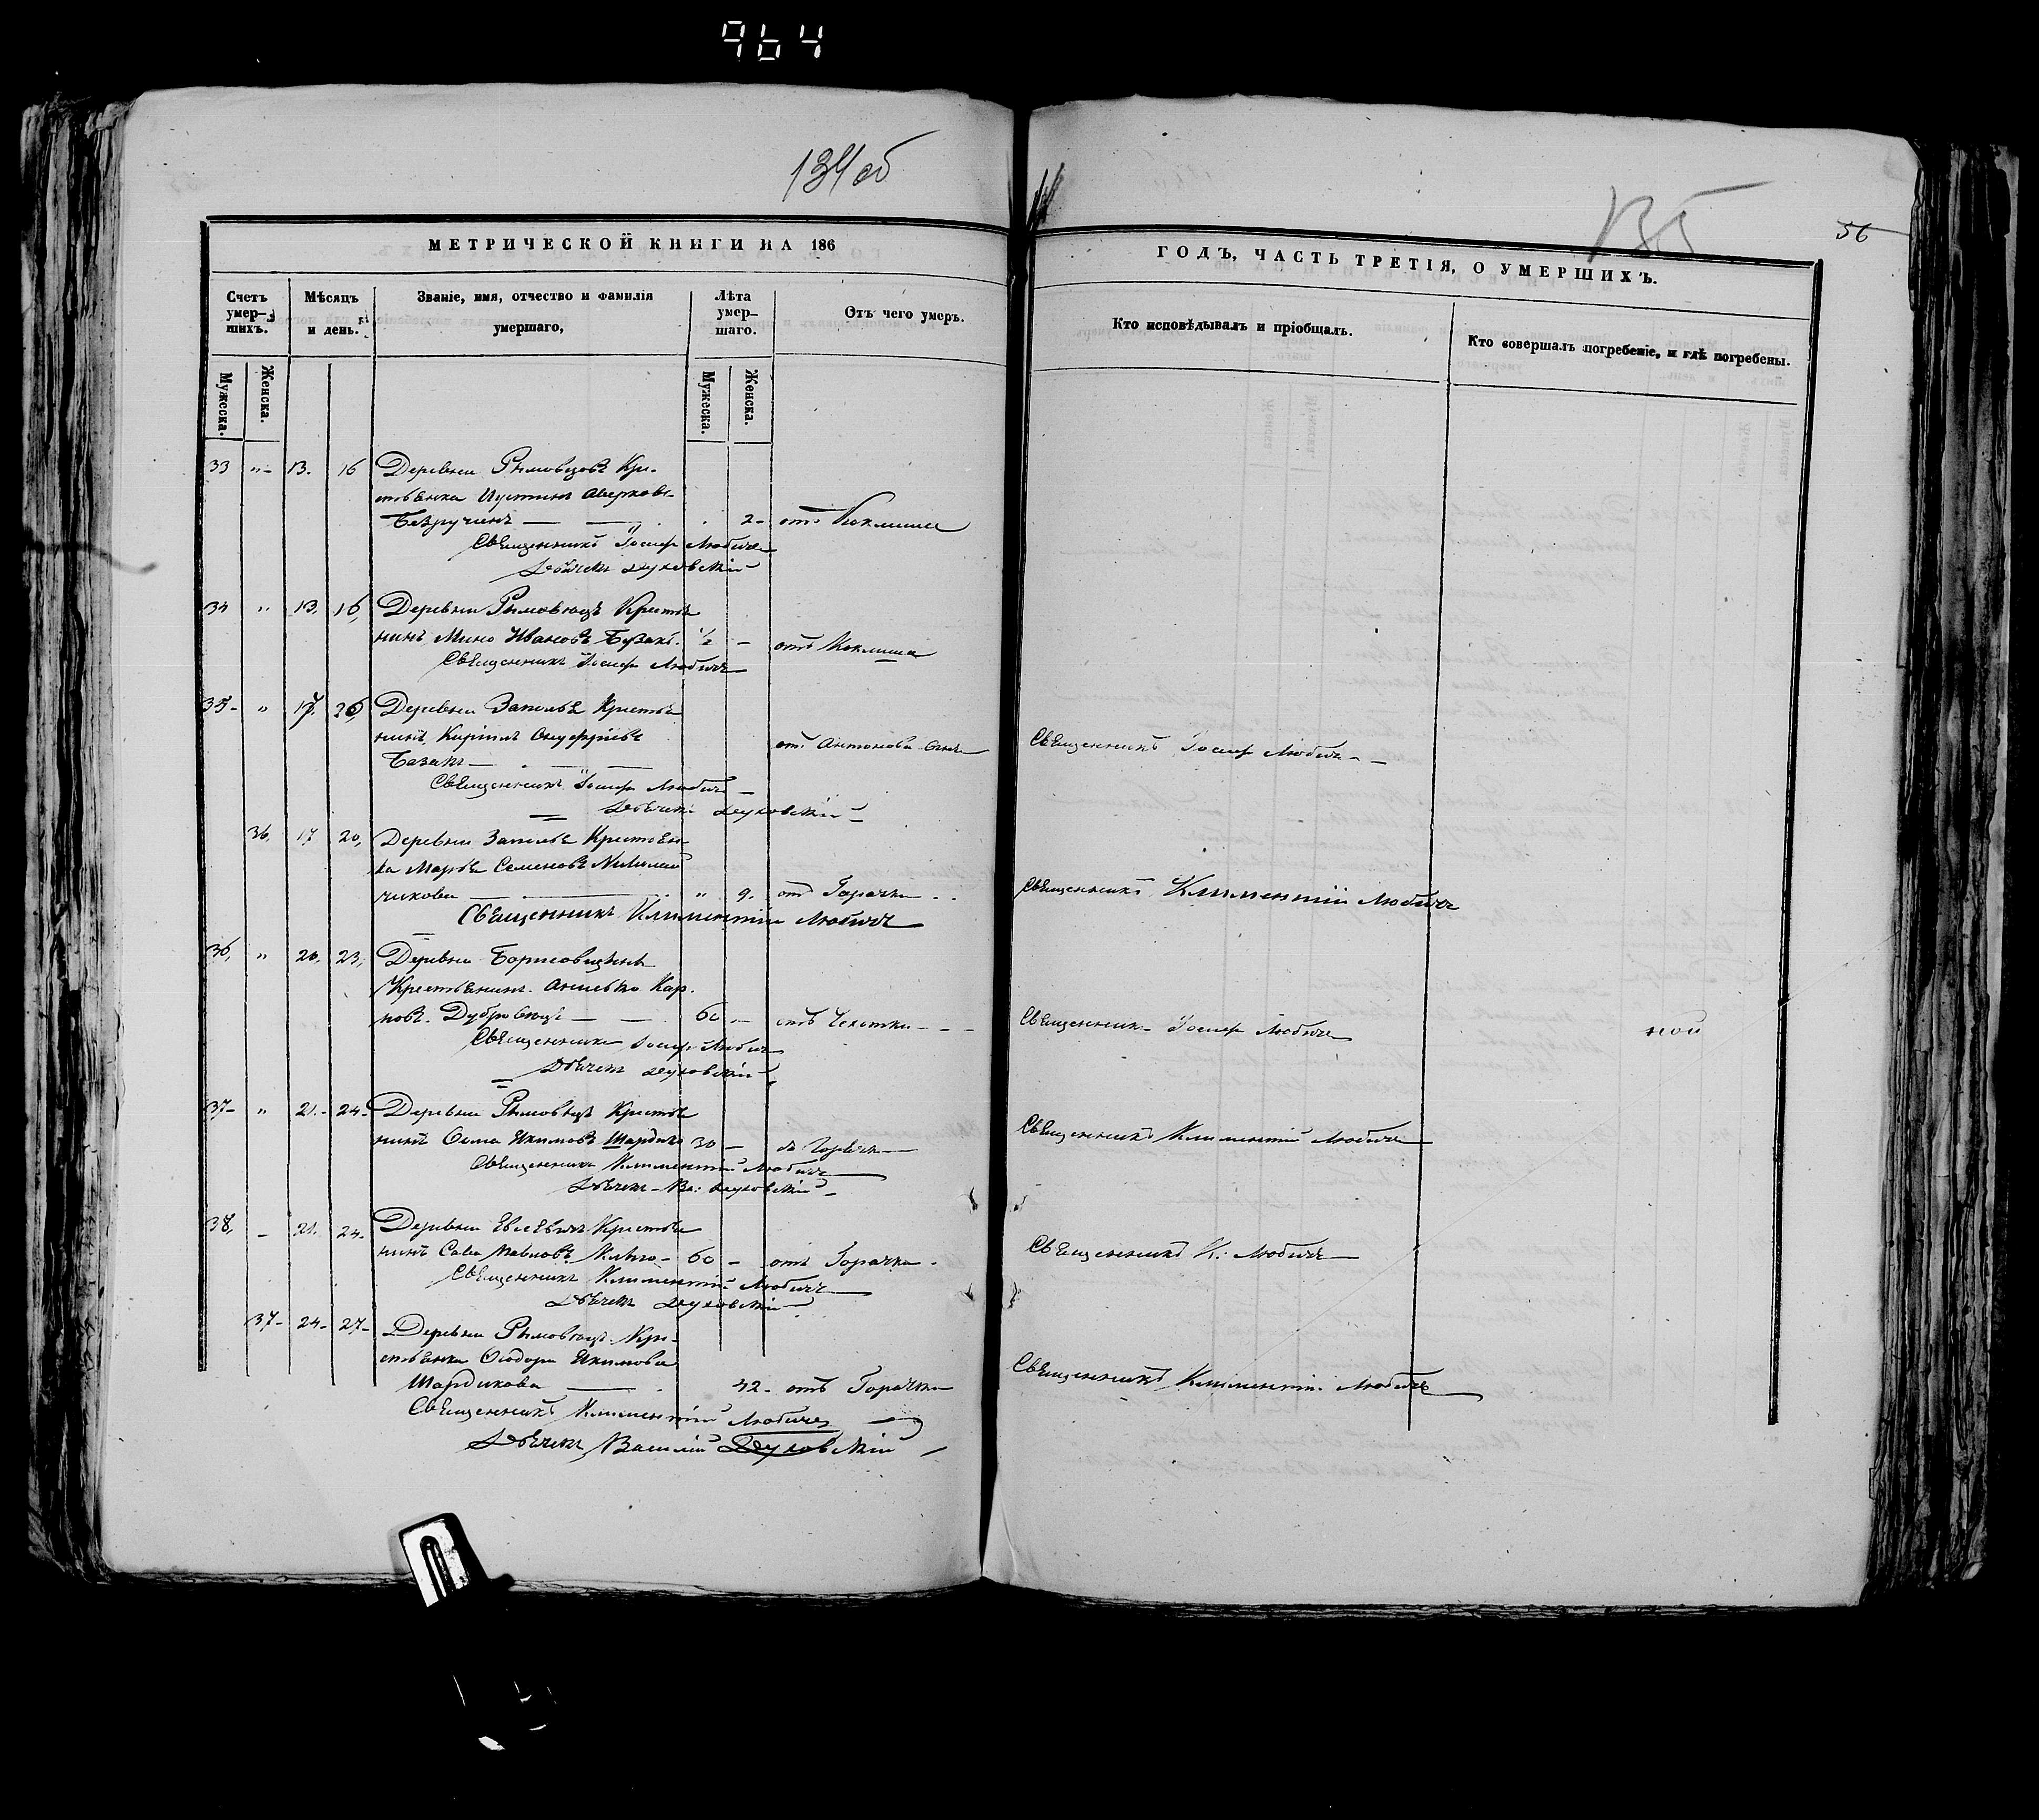 964
134об
135
56
МЕТРИЧЕСКОЙ КНИГИ НА 186
ГОДЪ, ЧАСТЬ ТРЕТІЯ, О УМЕРШИХЪ.
Счетъ умер-шихъ.
Мѣсяцъ и день.
Званіе, имя, отчество и фамилія умершаго,
Лѣта умер-шаго.
Отъ чего умеръ.
Кто исповѣдывалъ и пріобщалъ.
Кто совершалъ погребеніе, и гдѣ погребены.
Мужеска.
Женска.
Мужеска.
Женска.
33 "- 13. 16 Деревни Рымовцовъ Кре-
стьянка
2- отъ Коклюша
Священникъ Іосифъ Любичъ
Дьячекъ Духовскій
34 " 13. 16, Деревни Рымовецъ Крестья
нинъ Мино Ивановъ 1/2 - отъ Коклюша
Священникъ Іосифъ Любичъ
35- " 17. 20, Деревни Заполье Крестья
нинъ Кирилъ Онуфріевъ отъ Антонова Огня Священникъ Іосифъ Любичъ
Базанъ
Священникъ Іосифъ Любичъ
Дьячекъ Духовскій
36, 17 20, Деревни Заполье Крестьян-
ка Марѳа Семенова
чикова " 9. отъ Горячки Священникъ Климентій Любичъ
Священникъ Климентій Любичъ
36, " 20, 23, Деревни Борисовщины
Крестьянинъ Кар-
повъ 60 - отъ Чехотки Священникъ Іосифъ Любичъ ной
Священникъ Іосифъ Любичъ
Дьячекъ Духовскій
37- " 21.- 24- Деревни Рымовецъ Крестья
нинъ Ѳома Якимовъ Шардыко 30 - Горячки Священникъ Климентій Любичъ
Священникъ Климентій Любичъ
Дьячекъ Ва: Духовскій
38, - 21. 24- Деревни Евсевичъ Крестья
нинъ Сава Павловъ 60 - отъ Горячки Священникъ К: Любичъ
Священникъ Климентій Любичъ
Дьячекъ Духовскій
37- 24- 27- Деревни Рымовецъ Кре-
стьянка Ѳеодора Якимова
Шардикова 42- отъ Горячки Священникъ Климентій Любичъ
Священникъ Климентій Любичъ
Дьячекъ Василій Духовскій